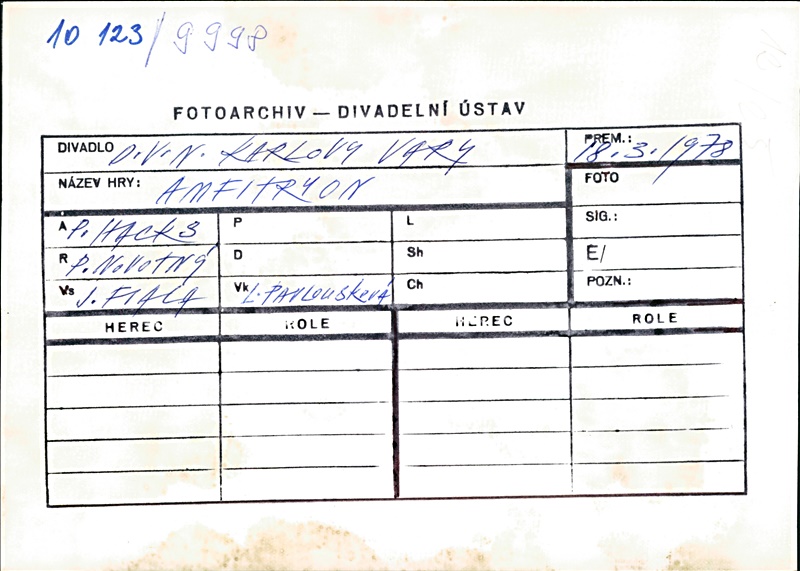 10 123/9998
FOTOARCHIV — DIVADELNÍ ÚSTAV
DIVADLO D.V.N. KARLOVY VARY
PREM.: 18.3.1978
NÁZEV HRY: AMFITRYON
FOTO
A P. HACKS P L SIG.:
R P. NOVOTNÝ D Sh E/
Vs J. FIALA Vk L. PAVLOUSKOVÁ Ch POZN.:
HEREC ROLE HEREC ROLE